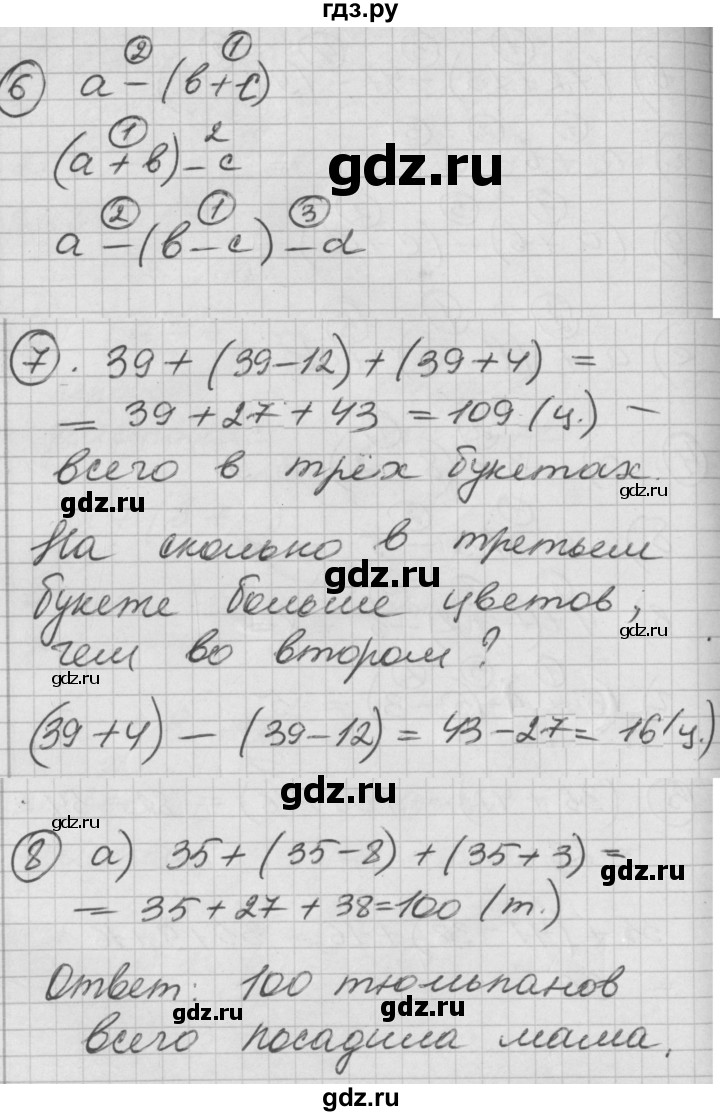 гдз.ру
② ①
⑥ а – (в + с)
① 2
(а + в) – с
gdz.ru
② ① ③
а – (в – с) – d
⑦. 39 + (39 – 12) + (39 + 4) =
= 39 + 27 + 43 = 109 (ц.) –
всего в трёх букетах.
gdz.ru gdz.ru
На сколько в третьем
gdz.ru
букете больше цветов,
gdz.ru
чем во втором?
gdz.ru
(39 + 4) – (39 – 12) = 43 – 27 = 16 (ц.)
gdz.ru
gdz.ru
⑧ а) 35 + (35 – 8) + (35 + 3) =
gdz.ru
= 35 + 27 + 38 = 100 (т.)
Ответ: 100 тюльпанов
gdz.ru gdz.ru
всего посадила мама.
gdz.ru
gdz.ru